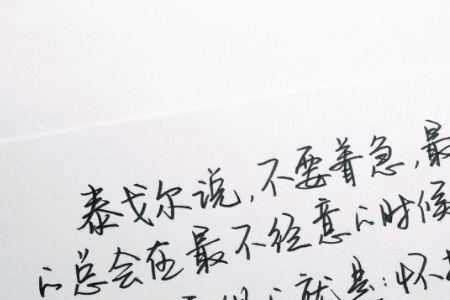 泰戈尔说，不要着急，最
的总会在最不经意的时候
就是：怀